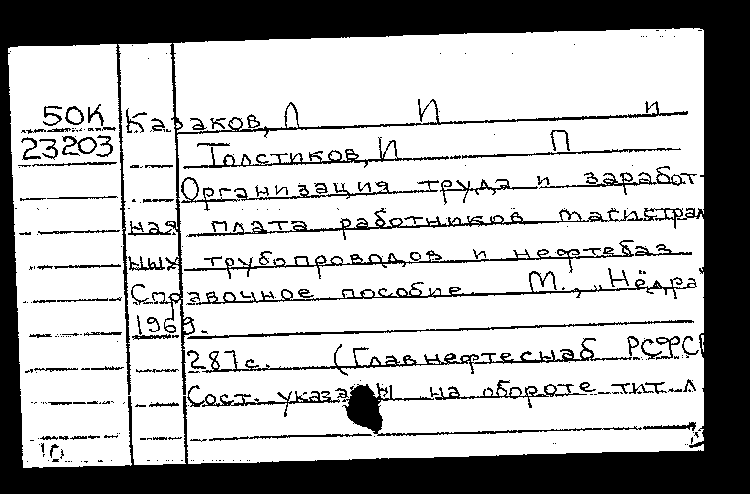 50К Казаков, Л И и
23203 Толстиков, И П
Организация труда и заработ-
ная плата работников магистрал
ных трубопроводов и нефтебаз
Справочное пособие. М., „Нёдра"
1969.
287с. (Главнефтеснаб РСФСР
Сост. указаны на обороте тит. л.
10